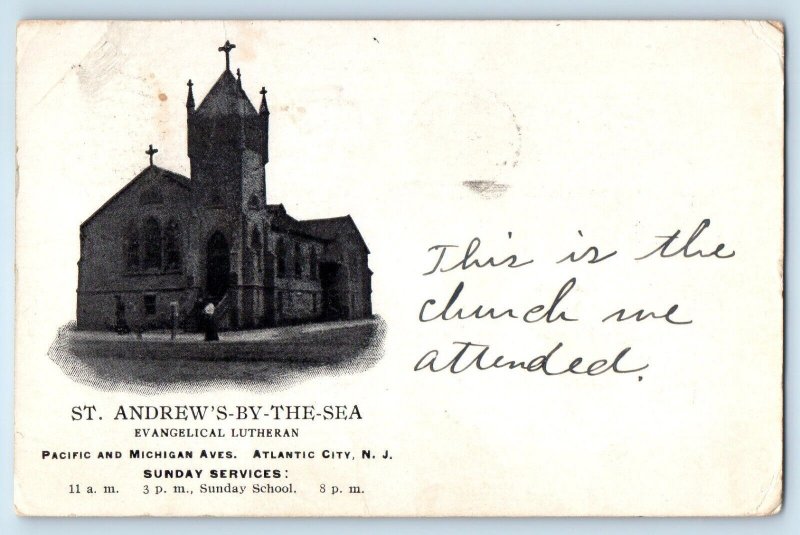 ST. ANDREW'S-BY-THE-SEA
EVANGELICAL LUTHERAN
PACIFIC AND MICHIGAN AVES. ATLANTIC CITY, N. J.
SUNDAY SERVICES:
11 a. m. 3 p. m., Sunday School. 8 p. m.
This is the
church we
attended.